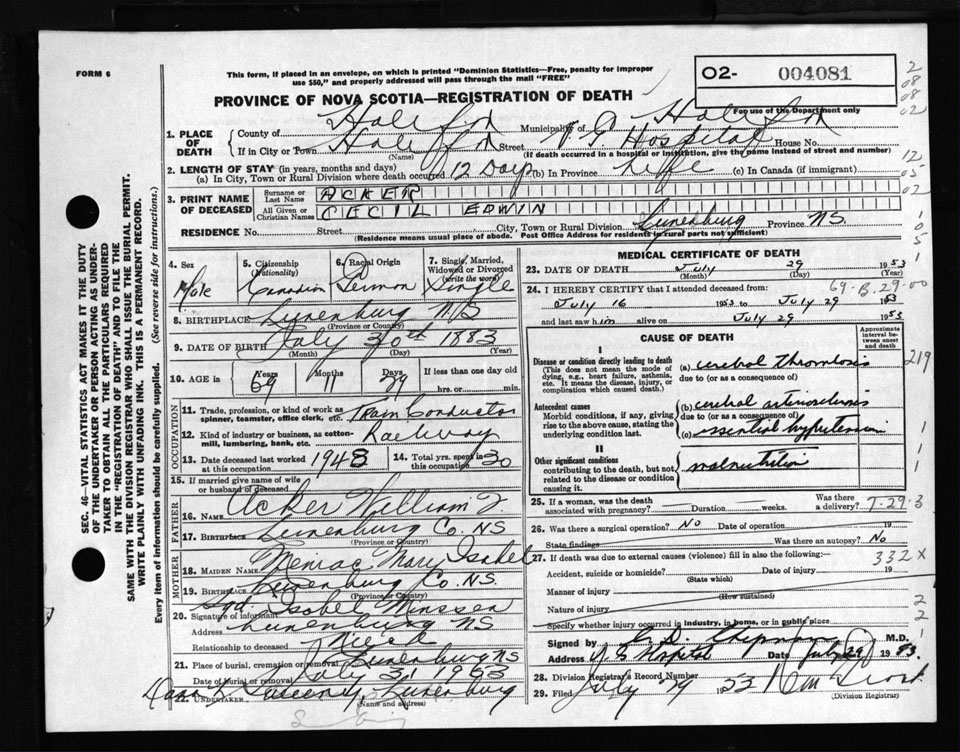 FORM 6
This form, if placed in an envelope, on which is printed "Dominion Statistics—Free, penalty for improper
use $50," and properly addressed will pass through the mail "FREE"
02- 004081
For use of the Department only
PROVINCE OF NOVA SCOTIA—REGISTRATION OF DEATH
2 08 08 02
1. PLACE OF DEATH
County of Halifax Municipality of Halifax
If in City or Town Halifax Street V. G Hospital House No.
(Name) (If death occurred in a hospital or institution, give the name instead of street and number)
2. LENGTH OF STAY (in years, months and days)
(a) In City, Town or Rural Division where death occurred 12 Days (b) In Province Life (c) In Canada (if immigrant)
12 05 02
3. PRINT NAME OF DECEASED
Surname or Last Name ACKER
All Given or Christian Names CECIL EDWIN
RESIDENCE No. Street City, Town or Rural Division Lunenburg Province NS.
(Residence means usual place of abode. Post Office Address for residents in rural parts not sufficient)
4. Sex Male
5. Citizenship (Nationality) Canadian
6. Racial Origin German
7. Single, Married, Widowed or Divorced (write the word) Single
8. BIRTHPLACE Lunenburg N.S
(Province or Country)
9. DATE OF BIRTH July 30th 1883
(Month) (Day) (Year)
10. AGE in Years 69 Months 11 Days 29 If less than one day old hrs. or min.
OCCUPATION
11. Trade, profession, or kind of work as spinner, teamster, office clerk, etc. Train Conductor
12. Kind of industry or business, as cotton-mill, lumbering, bank, etc. Railway
13. Date deceased last worked at this occupation 1948
14. Total yrs. spent in this occupation 30
15. If married give name of wife or husband of deceased
FATHER
16. Name Acker William J.
17. Birthplace Lunenburg Co. NS
(Province or Country)
MOTHER
18. MAIDEN NAME Mary Isabel
19. BIRTHPLACE Lunenburg Co. NS.
(Province or Country)
20. Signature of informant sgd. Isobel
Address Lunenburg NS
Relationship to deceased Niece
21. Place of burial, cremation or removal Lunenburg NS
Date of burial or removal July 31 1953
22. UNDERTAKER Sweeney, Lunenburg
(Name and address)
MEDICAL CERTIFICATE OF DEATH
23. DATE OF DEATH July 29 1953
(Month) (Day) (Year)
24. I HEREBY CERTIFY that I attended deceased from:
69-B.29-00
July 16 1953 to July 29 1953
and last saw him alive on July 29 1953
CAUSE OF DEATH
Approximate interval between onset and death
I
Disease or condition directly leading to death
(This does not mean the mode of dying, e.g., heart failure, asthenia, etc. It means the disease, injury, or complication which caused death.)
(a) cerebral thrombosis
due to (or as consequence of)
219
Antecedent causes
Morbid conditions, if any, giving rise to the above cause, stating the underlying condition last.
(b) cerebral arteriosclerosis
due to (or as consequence of)
(c) essential hypertension
II
Other significant conditions contributing to the death, but not related to the disease or condition causing it.
malnutrition
25. If a woman, was the death associated with pregnancy? Duration weeks. Was there a delivery?
7-29-3
26. Was there a surgical operation? No Date of operation 19
State findings Was there an autopsy? No
27. If death was due to external causes (violence) fill in also the following:—
332 X
Accident, suicide or homicide? Date of injury 19
(State which)
Manner of injury
(How sustained)
Nature of injury
Specify whether injury occurred in industry, in home, or in public place
Signed by M.D.
Address V. G Hospital Date July 29 1953.
28. Division Registrar's Record Number
29. Filed July 29 1953
(Division Registrar)
SEC. 46—VITAL STATISTICS ACT MAKES IT THE DUTY
OF THE UNDERTAKER OR PERSON ACTING AS UNDER-
TAKER TO OBTAIN ALL THE PARTICULARS REQUIRED
IN THE "REGISTRATION OF DEATH" AND TO FILE THE
SAME WITH THE DIVISION REGISTRAR WHO SHALL ISSUE THE BURIAL PERMIT.
WRITE PLAINLY WITH UNFADING INK. THIS IS A PERMANENT RECORD.
Every item of information should be carefully supplied. (See reverse side for instructions.)